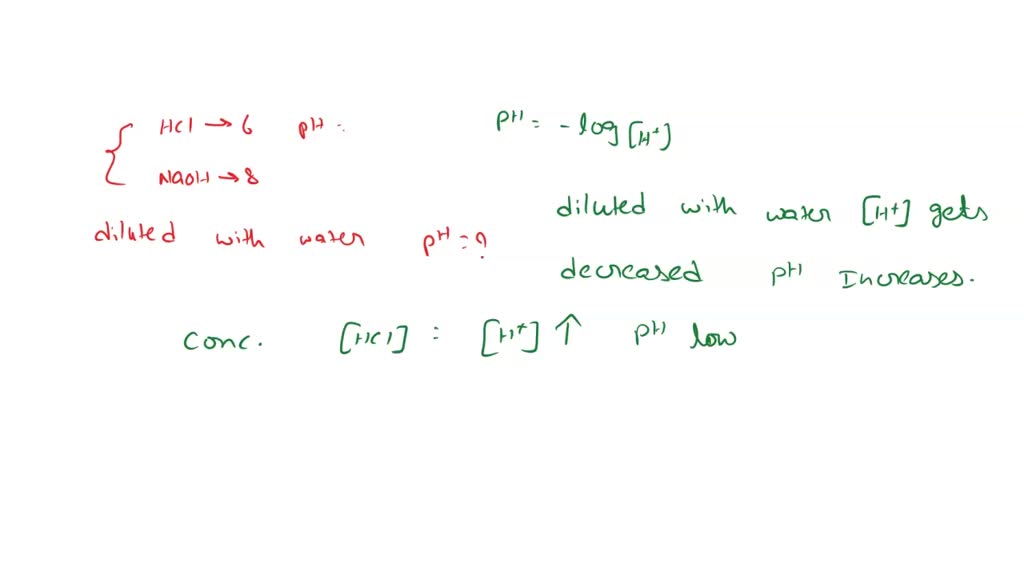 HCl → 6 pH =
NaOH → 8
diluted with water pH = ?
pH = - log [H+]
diluted with water [H+] gets
decreased pH Increases.
Conc. [HCl] = [H+] ↑ pH low